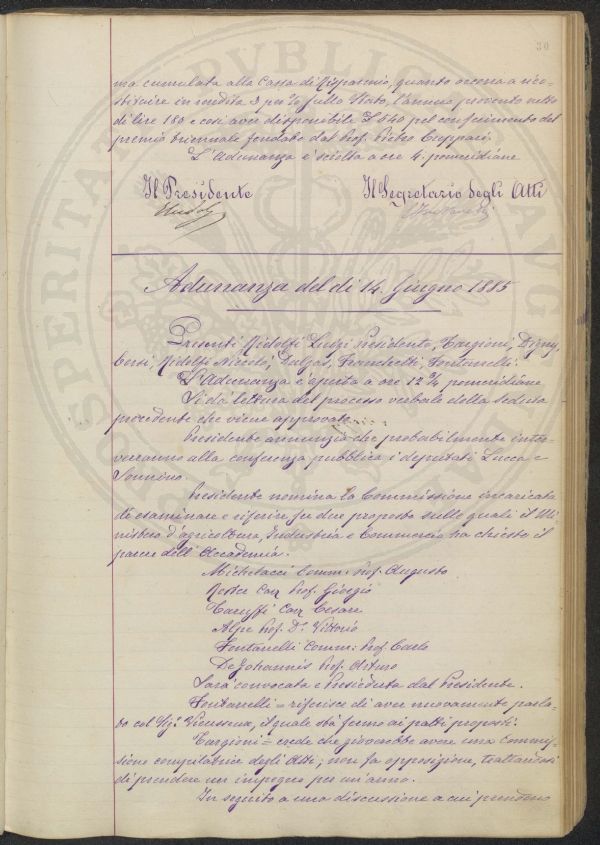 30
ma cumulata alla Cassa di Risparmio, quanto occorra a rico-
stituire in rendita 3 per % sullo Stato, l'annuo provento netto
di lire 180 e così aver disponibile £ 540 pel conferimento del
premio triennale fondato dal Prof. Pietro Cuppari.
L'Adunanza è sciolta a ore 4. pomeridiane
Il Presidente Il Segretario degli Atti
Adunanza del dì 14. Giugno 1885
Presenti Ridolfi Luigi Presidente, Targioni, Digny,
Ridolfi Niccolò, Dalgas, Franchetti, Fontanelli.
L'Adunanza è aperta a ore 12 3/4 pomeridiane
Si dà lettura del processo verbale della seduta
precedente che viene approvato.
Presidente annunzia che probabilmente inter-
verranno alla conferenza pubblica i deputati Lucca e
Sonnino.
Presidente nomina la Commissione incaricata
di esaminare e riferire su due proposte sulle quali il Mi-
nistero d'agricoltura, Industria e Commercio ha chiesto il
parere dell'Accademia.
Michelacci Comm: Prof. Augusto
Roster Cav Prof. Giorgio
Taruffi Cav Cesare
Alpe Prof. Dr. Vittorio
Fontanelli Comm: Prof Carlo
De Johannis Prof. Arturo
Sarà convocata e Presieduta dal Presidente.
Fontanelli = riferisce di aver nuovamente parla-
to col Sigr. Vieusseux, il quale sta fermo ai patti proposti.
Targioni = crede che gioverebbe avere una Commis-
sione compilatrice degli Atti; non fa opposizione, trattandosi
di prendere un impegno per un anno.
In seguito a una discussione a cui prendono